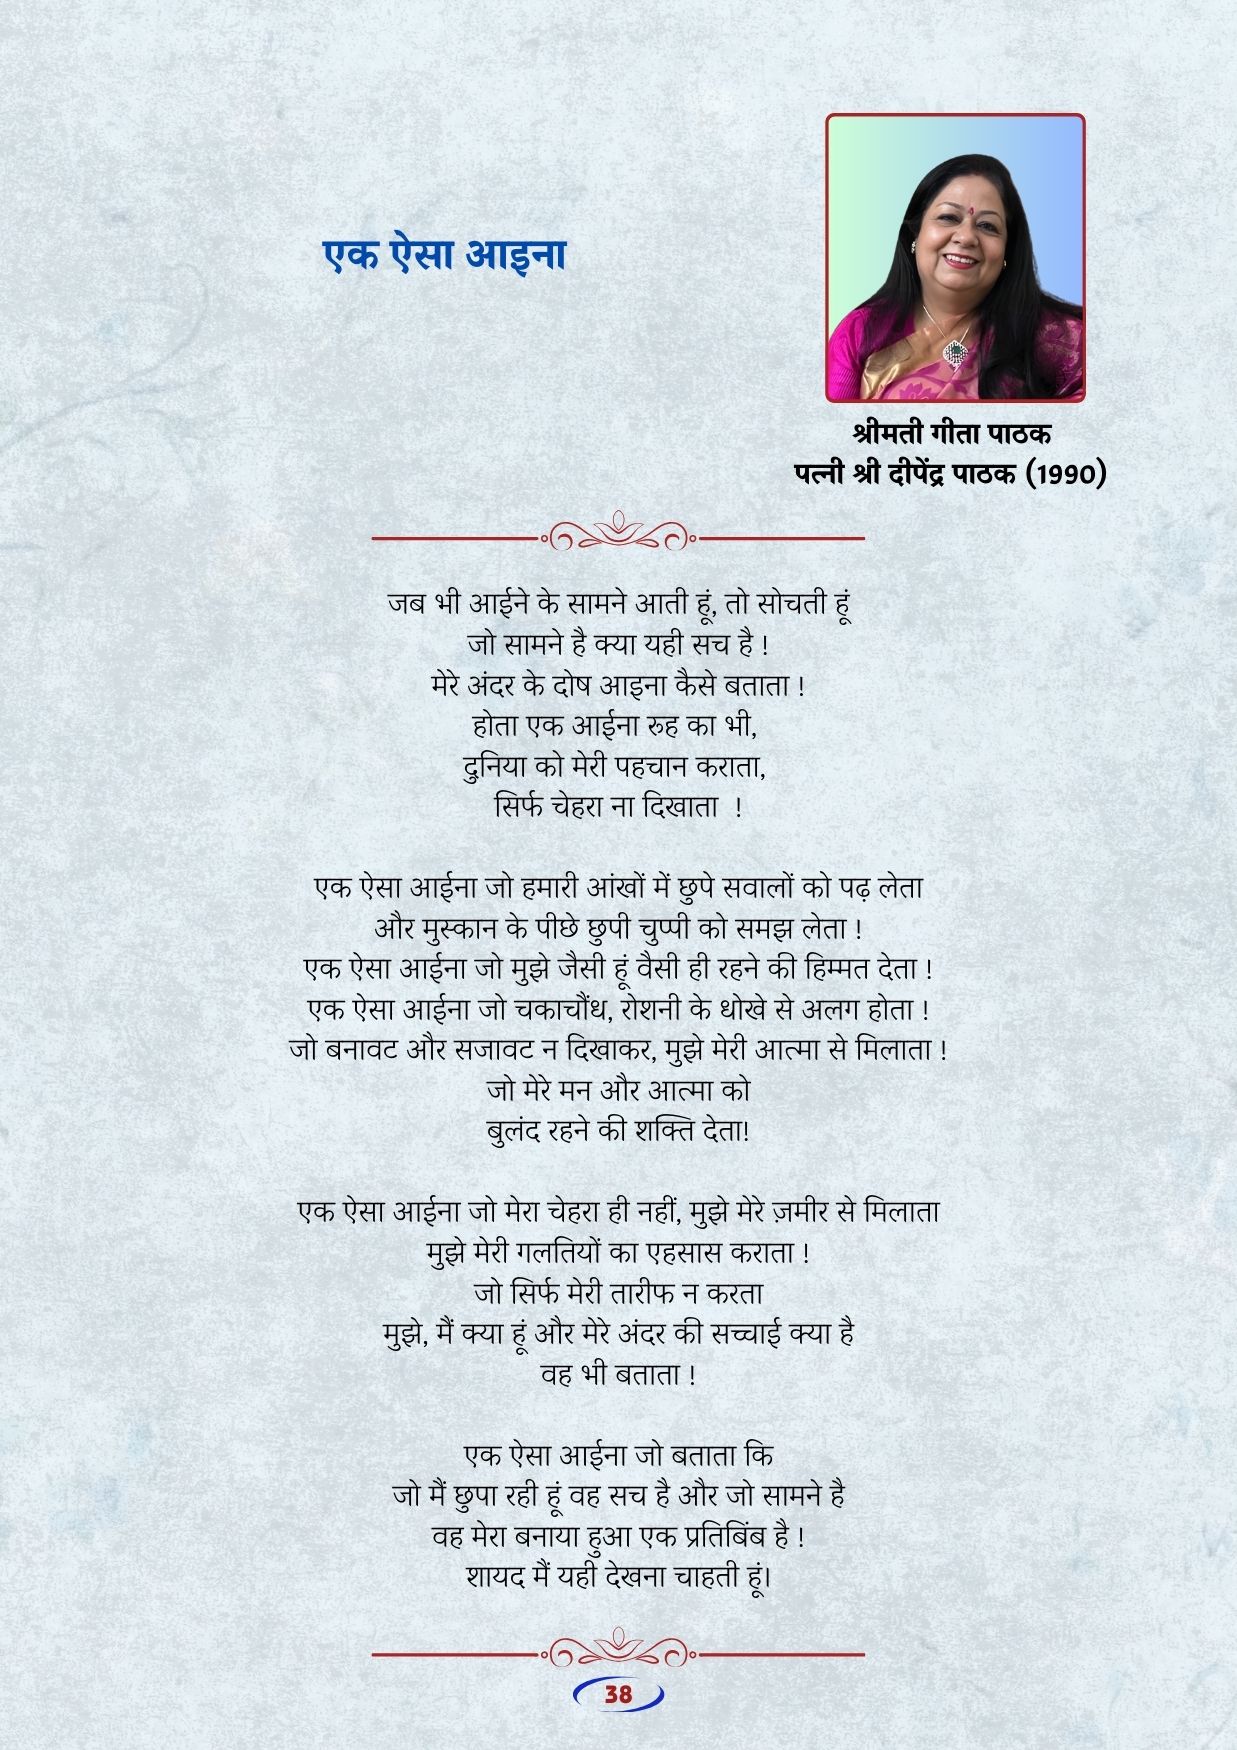 एक ऐसा आइना
श्रीमती गीता पाठक
पत्नी श्री दीपेंद्र पाठक (1990)
जब भी आईने के सामने आती हूं, तो सोचती हूं
जो सामने है क्या यही सच है !
मेरे अंदर के दोष आइना कैसे बताता !
होता एक आईना रूह का भी,
दुनिया को मेरी पहचान कराता,
सिर्फ चेहरा ना दिखाता  !
एक ऐसा आईना जो हमारी आंखों में छुपे सवालों को पढ़ लेता
और मुस्कान के पीछे छुपी चुप्पी को समझ लेता !
एक ऐसा आईना जो मुझे जैसी हूं वैसी ही रहने की हिम्मत देता !
एक ऐसा आईना जो चकाचौंध, रोशनी के धोखे से अलग होता !
जो बनावट और सजावट न दिखाकर, मुझे मेरी आत्मा से मिलाता !
जो मेरे मन और आत्मा को
बुलंद रहने की शक्ति देता!
एक ऐसा आईना जो मेरा चेहरा ही नहीं, मुझे मेरे ज़मीर से मिलाता
मुझे मेरी गलतियों का एहसास कराता !
जो सिर्फ मेरी तारीफ न करता
मुझे, मैं क्या हूं और मेरे अंदर की सच्चाई क्या है
वह भी बताता !
एक ऐसा आईना जो बताता कि
जो मैं छुपा रही हूं वह सच है और जो सामने है
वह मेरा बनाया हुआ एक प्रतिबिंब है !
शायद मैं यही देखना चाहती हूं।
38